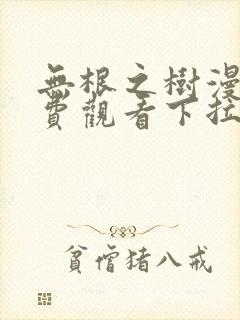 無根之樹漫
費觀看下拉
貧僧猪八戒